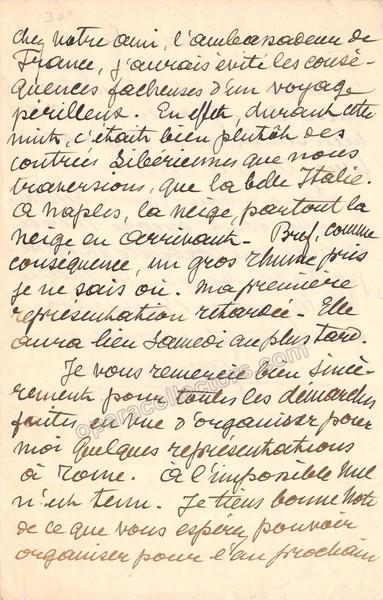 300
chez notre ami, l'ambassadeur de
France, j'aurais évité les consé-
quences facheuses d'un voyage
périlleux. En effet, durant cette
nuit, c'était bien plutôt des
contrées Sibériennes que nous
traversions, que la belle Italie.
A Naples, la neige, partout la
neige en arrivant - Bref, comme
conséquence, un gros rhume pris
je ne sais où. Ma première
représentation retardée - Elle
aura lieu Samedi au plus tard.
Je vous remercie bien sincè-
rement pour toutes les démarches
faites en vue d'organiser pour
moi quelques représentations
à Rome. à l'impossible nul
n'est tenu. Je tiens bonne note
de ce que vous espérez pouvoir
organiser pour l'an prochain
operacollectors.com